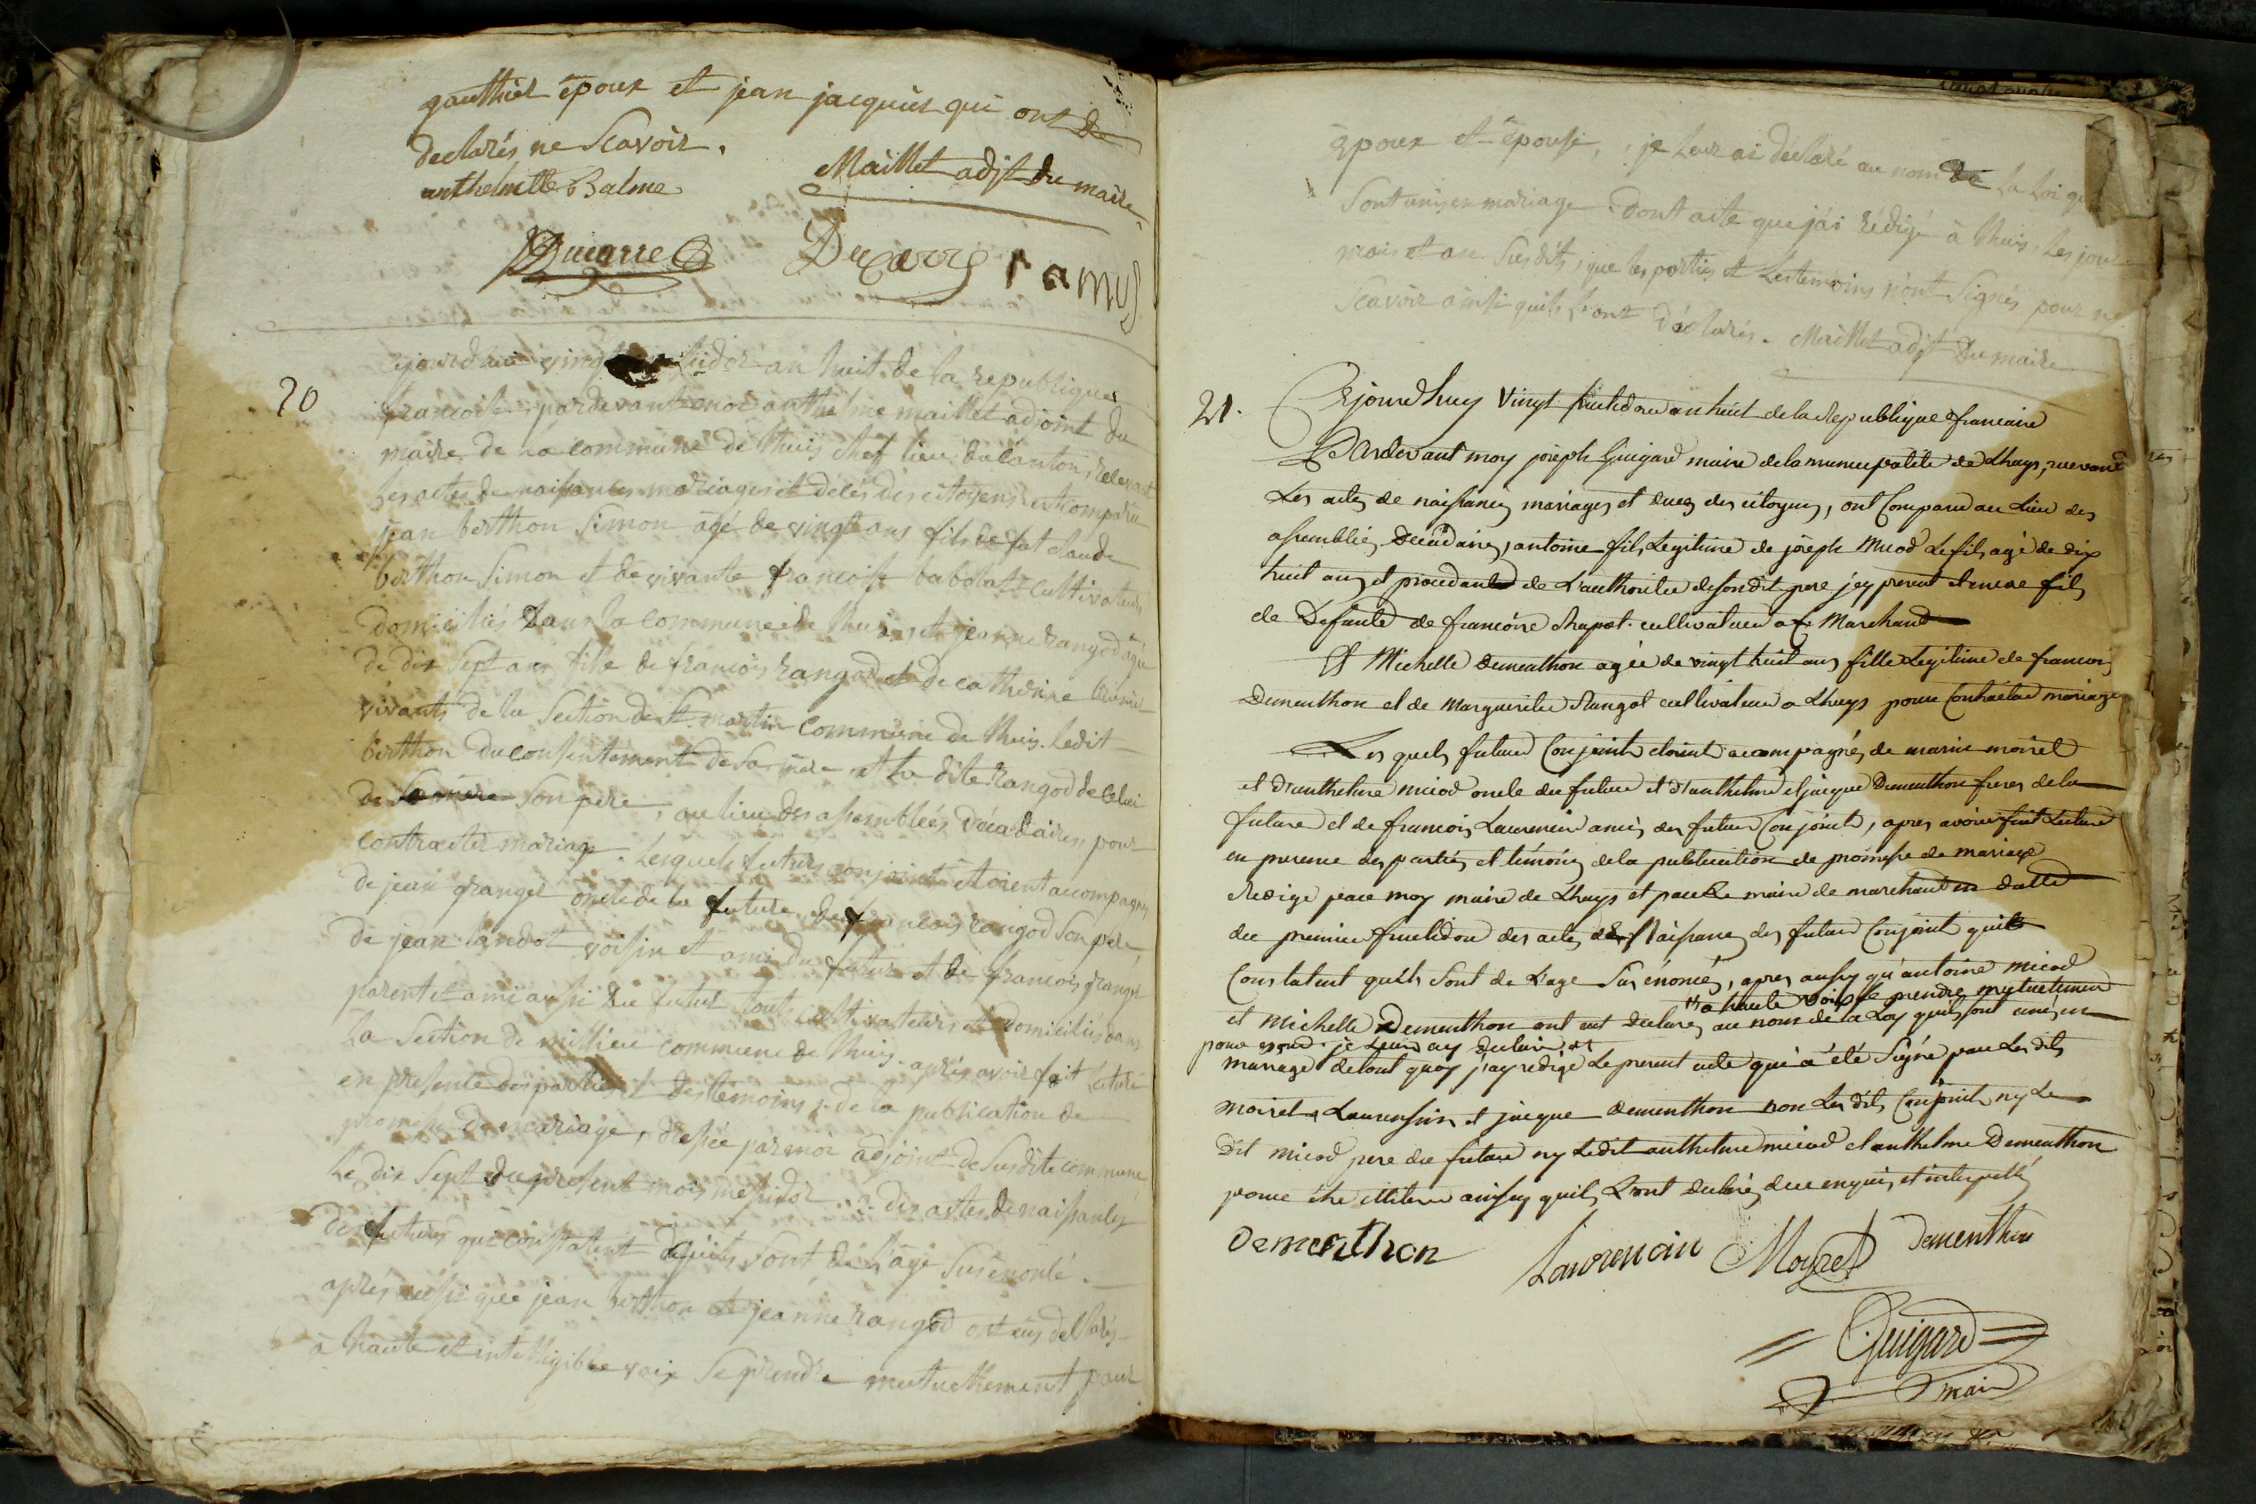 gauthier époux et jean jacquier qui ont de
declarés ne Scavoir.
anthelmtte Balme Maillet adjt du maire
Ducarre ramuj
20
cejourdhui vingt an huit de la republique
francoise, pardevant moi anthelme maillet adjoint du
maire de la commune de lhuis chef lieu de canton, relevant
les actes de naissances mariages et décés des citoyens est comparu
jean berthon Simon agé de vingt ans fils de fut claude
berthon Simon et de vivante francoise babolat cultivateurs
domiciliés dans la commune de lhuis et jeanne rangod agée
de dix Sept ans fille de francois rangod et de catherine
vivants de la Section de St martin commune de lhuis. Ledit
berthon du consentement de Sa mère et la dite rangod de celui
de Sa mere Son père, au lieu des assemblées décadaires pour
contracter mariage. Lesquels futurs conjoints etoient accompagnés
de jean granger oncle de la future, de francois rangod Son père,
de jean landot voisin et ami du futur et de francois granger
parent et ami aussi du futur tous cultivateurs et domiciliés dans
la Section de millieu commune de lhuis. après avoir fait lecture
en presence des parties et des temoins ; de la publication de
promesse de mariage, dressée par moi adjoint de Susdite commune
le dix Sept du présent mois messidor : 2° des actes de naissances
des futurs qui constatent qu'ils Sont de l'age Susenoncé.
après aussi que jean berthon et jeanne rangod ont eus declarés
à haute et intelligible voix Se prendre mutuellement pour
époux et épouse, je leur ai déclaré au nom de la Loi qu
Sont unis en mariage. dont acte que j'ai rédigé à lhuis, les jour
mois et an Susdits, que les parties et Les temoins n'ont Signés pour ne
Scavoir ainsi quils l'ont déclarés. Maillet adjt du maire
21.
Cejourdhuy vingt fructidor an huit de la Republique francaise
Pardevant moy joseph Guigard maire de la municipalité de Lhuys, recevant
Les actes de naissances mariages et deces des citoyens, ont Comparu au Lieu des
assemblées Decadaires, antoine fils Legitime de joseph Micod Le fils agé de dix
huit ans et procedant de L'authorité de son dit pere jcy present et encore fils
de Defunte de francoise chapot cultivateur a Marchand
Et Michelle Dementhon agée de vingt huit ans fille Legitime de francois
Dementhon et de Marguerite Rangot cultivateur a Lhuys pour Contracter mariage
Les quels futurs Conjoints etoient accompagnés de marin moiret
et d'anthelme micod oncle du futur et d'anthelme et jacque Dementhon freres de la
future et de francois Laurencin amis des futurs Conjoints, apres avoir fait Lecture
en presence des parties et témoins de la publication de promesse de mariage
Redigé par moy maire de Lhuys et par Le maire de marchand en datte
du premier fructidor des actes de Naissance des futurs Conjoints qui
Constatent qu'ils Sont de L'age Sus énoncés, apres aussy qu'antoine micod
a haute voix se prendre mutuelement
et Michelle Dementhon ont eut declarés au nom de la Loy quils sont unis en
pour epoux je Leur ay declaré
mariage de tout quoy j'ay redigé Le present acte qui a été Signé par Les dits
moiret Laurensin et jacque dementhon non Les dits Conjoints ny Le
Dit micod pere du futur ny Le dit anthelme micod et anthelme Dementhon
pour etre illiteré ainsy quils L'ont declaré de ce enquis et interpellé
Dementhon Laurencin Moyret dementhon
Guigard
maire